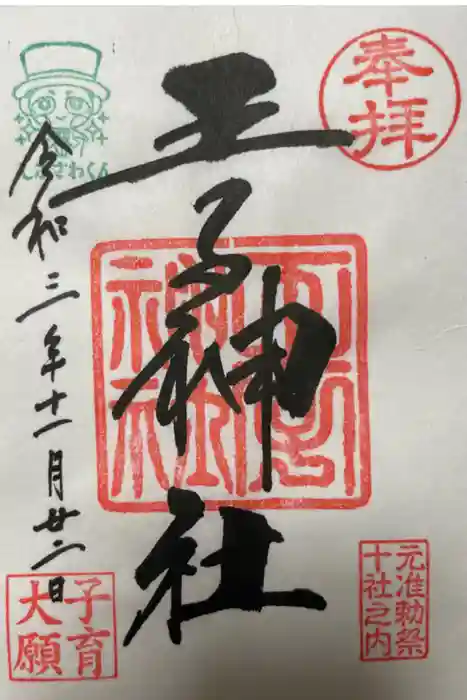 奉拝
王子神社
令和三年十一月廿二日
しぶさわくん
元准勅祭
十社之内
子育
大願